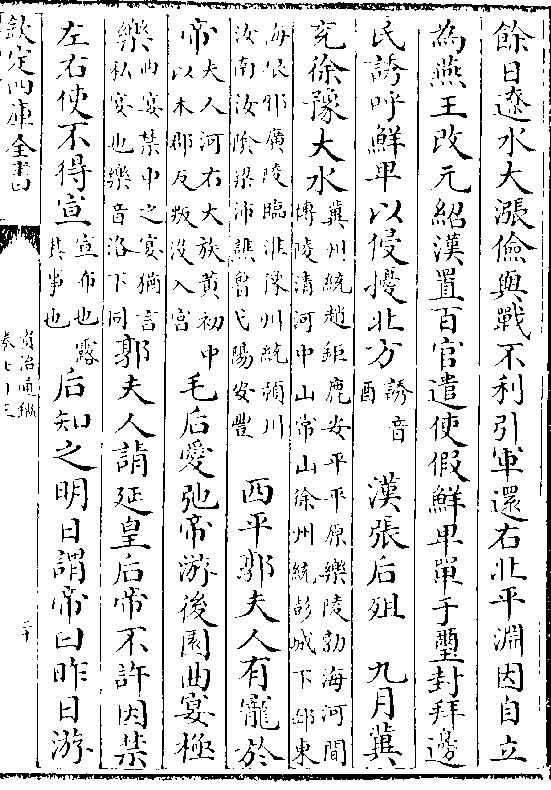 餘日遼水大漲儉與戰不利引軍還右北平淵因自立
為燕王改元紹漢置百官遣使假鮮卑單于璽封拜邊
民誘呼鮮卑以侵擾北方誘音酉漢張后殂九月冀
兖徐豫大水冀州統趙鉅鹿安平平原樂陵勃海河間博陵清河中山常山徐州統彭城下邳東
海琅邪廣陵臨淮豫州統潁川汝南汝陰梁沛譙魯弋陽安豐西平郭夫人有寵於
帝夫人河右大族黄初中以本郡反叛没入宫毛后愛弛帝游後園曲宴極
樂曲宴禁中之宴猶言私宴也樂音洛下同郭夫人請延皇后帝不許因禁
左右使不得宣宣布也露其事也后知之明日謂帝曰昨日游
欽定四庫全書
資治通鑑
卷七十三
三十